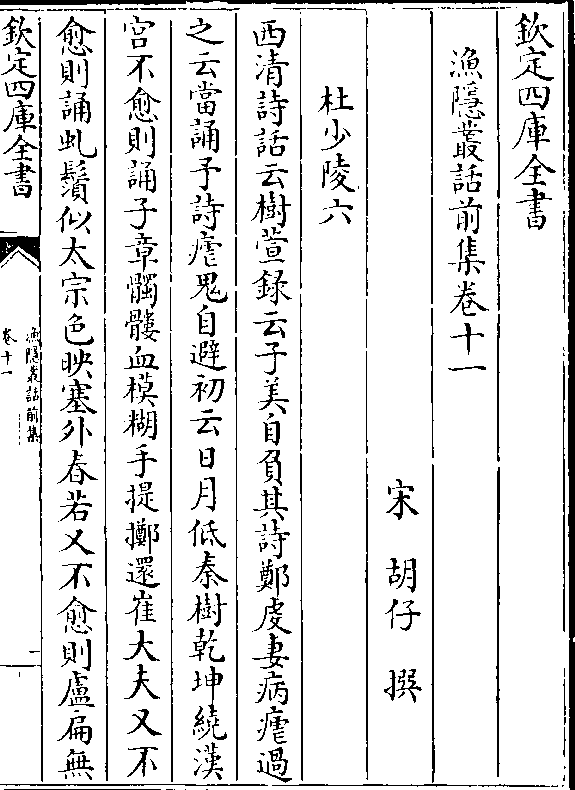 欽定四庫全書
漁隱叢話前集卷十一
宋 胡仔 撰
杜少陵六
西清詩話云樹萱錄云子美自負其詩鄭虔妻病瘧過
之云當誦予詩瘧鬼自避初云日月低秦樹乾坤繞漢
宫不愈則誦子章髑髏血模糊手提擲還崔大夫又不
愈則誦虬鬚似太宗色映塞外春若又不愈則盧扁無
欽定四庫全書
漁隱叢話前集
卷十一
一